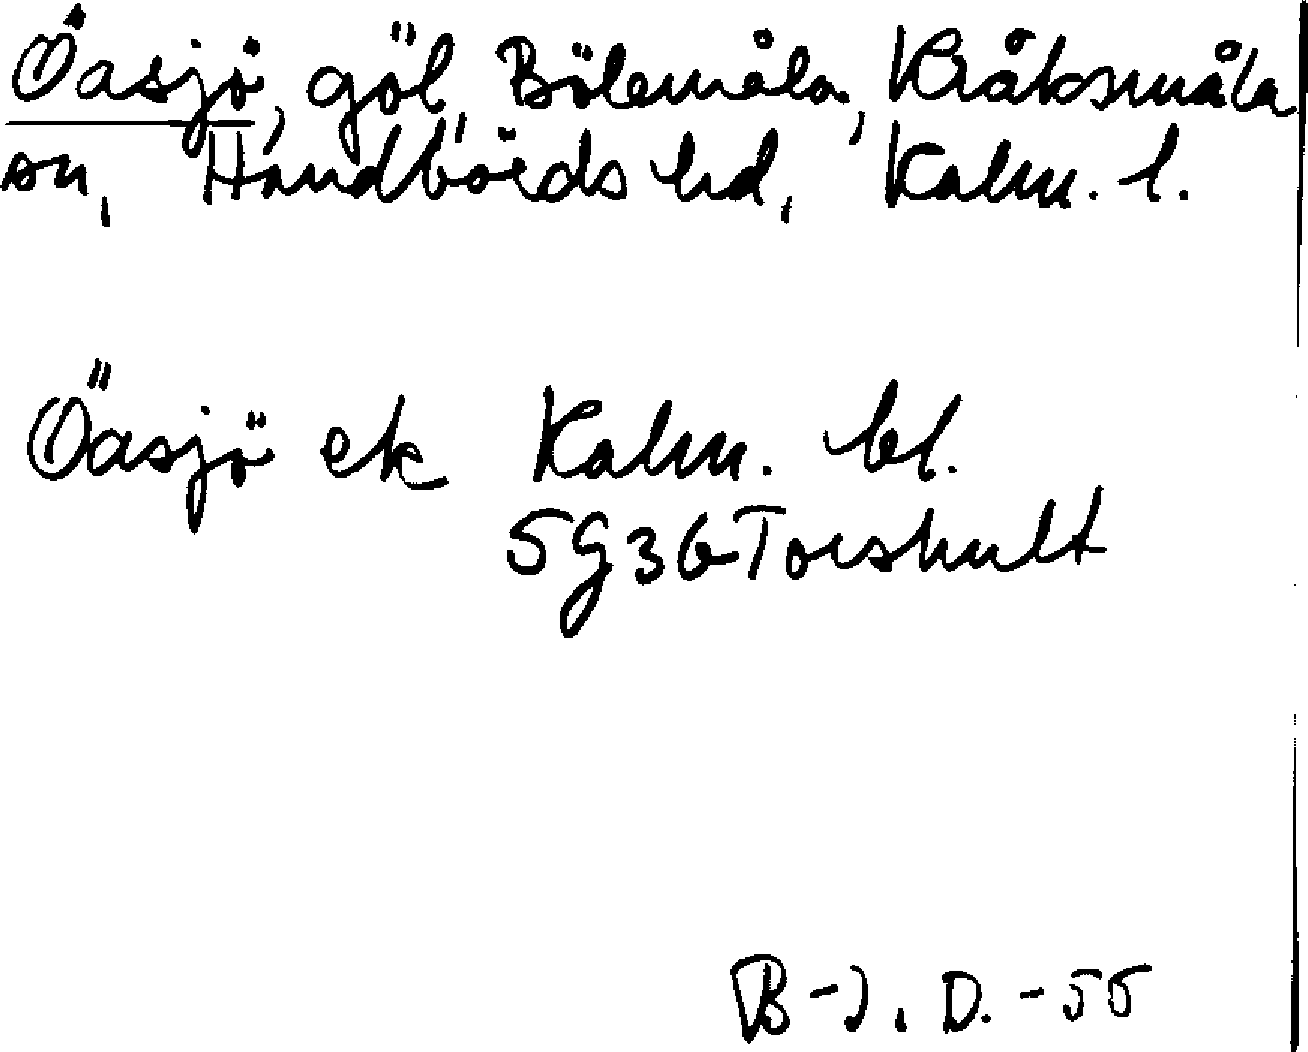 Öasjö, göl, Bölemåla, Kråksmåla
sn, Handbörds hd, Kalm. l.
Öasjö ek Kalm. bl.
5g36 Torshult
B-J. D. -55